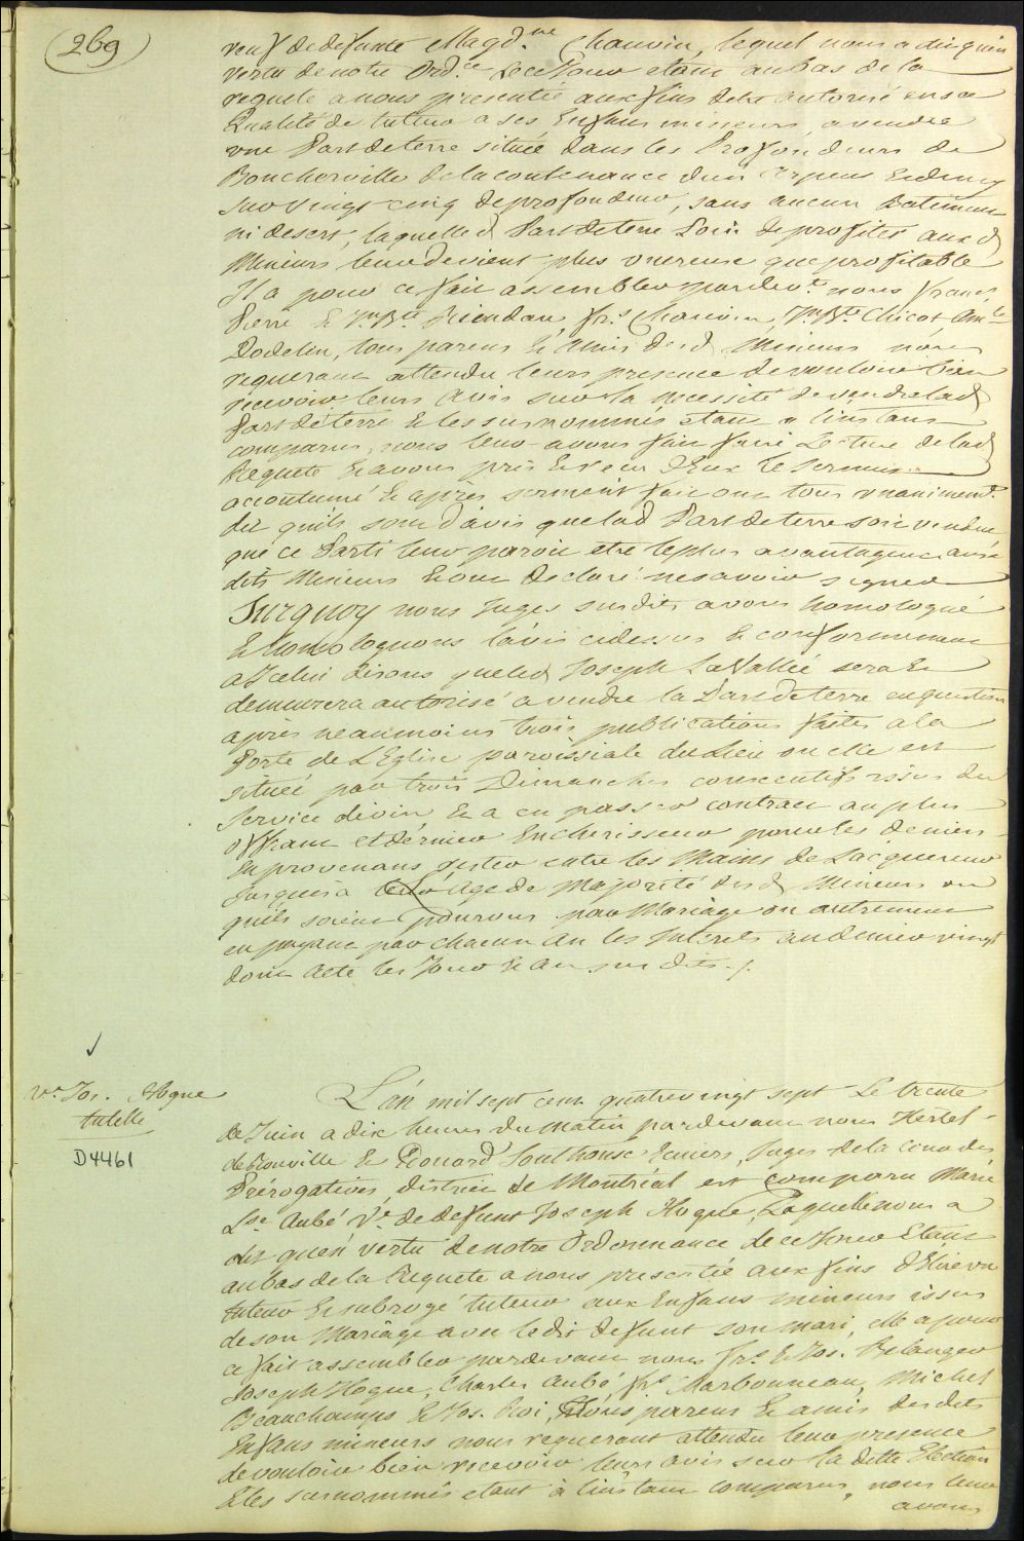 269
veuf de defunte Magd.ne Chauvin, lequel nous a dit qu'en
vertu de notre Ord.ce de ce Jour etant au bas de la
requete a nous presentée aux fins detre autorisé en sa
Qualité de tuteur a ses Enfans mineurs a vendre
une Part de terre située dans les Profondeurs de
Boucherville de la contenance d'un Arpent Endemy
sur vingt cinq de profondeur, sans aucun Batiment
ni desert, laquelle d Part de terre Loin de profiter aux d
Mineurs leur devient plus onereuse que profitable
Il a pour ce fait assembler pardev.t nous Francs
Pierre & Jn Bte Riendau, frs Chauvin, Jn Bte Chicot, Am.ble
Dodelin, tous parens & amis desd. Mineurs nous
requerant attendu leurs presence de vouloir bien
recevoir leurs avis sur la necessité de vendre lad
Part de terre & les surnommés etant a l'instant
comparus, nous leur avons fait faire Lecture de lad
Requete & avons pris & reçu d'Eux le serment
accoutumé & après serment fait ont tous unanimemt
dit qu'ils sont d'avis que lad Part de terre soit vendue
que ce Parti leur paroit etre le plus avantageux aux
dits Mineurs & ont declaré ne savoir signer
Surquoy nous Juges susdits avons homologué
& homologuons l'avis cidessus & conformement
a Icelui disons que led Joseph LaVallée sera &
demeurera autorisé a vendre la Part de terre en question
après neanmoins trois publications faites a la
Porte de L'Eglise paroissiale du Lieu ou elle est
située par trois Dimanches consecutifs issue du
Service divin & a en passer contract au plus
offrant et dernier Encherisseur pour les deniers
En provenans rester entre les Mains de Lacquereur
Jusqu'a L'Age de Majorité desd Mineurs ou
qu'ils soient pourvus par Mariage ou autrement
en payant par chacun An les Interets au denier vingt
dont Acte les Jour & an sus dits ./.
ve Jos. Hogue
tutelle
D4461
L'an mil sept cent quatrevingt sept Le trente
de Juin a dix heures du matin pardevant nous Hertel
de Rouville & Edouard Southouse Ecuiers, Juges de la Cour des
Prérogatives, district de Montréal est comparu Marie
Lse Aubé Ve de defunt Joseph Hogue, Laquelle nous a
dit qu'en vertu de notre Ordonnance de ce Jour Etant
au bas de la Requete a nous presentée aux fins d'Elire un
tuteur & subrogé tuteur aux Enfans mineurs issus
de son Mariage avec ledit defunt son mari, elle a pour
ce fait assembler pardevant nous frs & Jos. Belanger
Joseph Hogue, Charles Aubé, frs Charbonneau, Michel
Beauchamps & Jos. Roi, tous parens & amis desdits
Enfans mineurs nous requerant attendu leur presence
de vouloir bien recevoir leurs avis sur la dite Election
& les surnommés etant à l'instant comparus, nous leur
avons